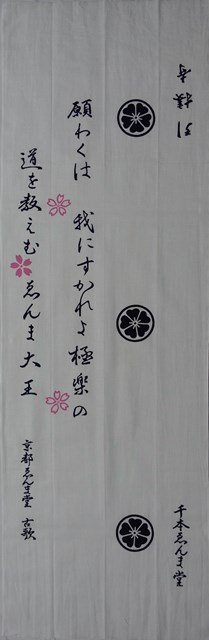 引接寺
千本ゑんま堂
願わくは 我にすかれよ極楽の
道を教えむゑんま大王
京都ゑんま堂 古歌